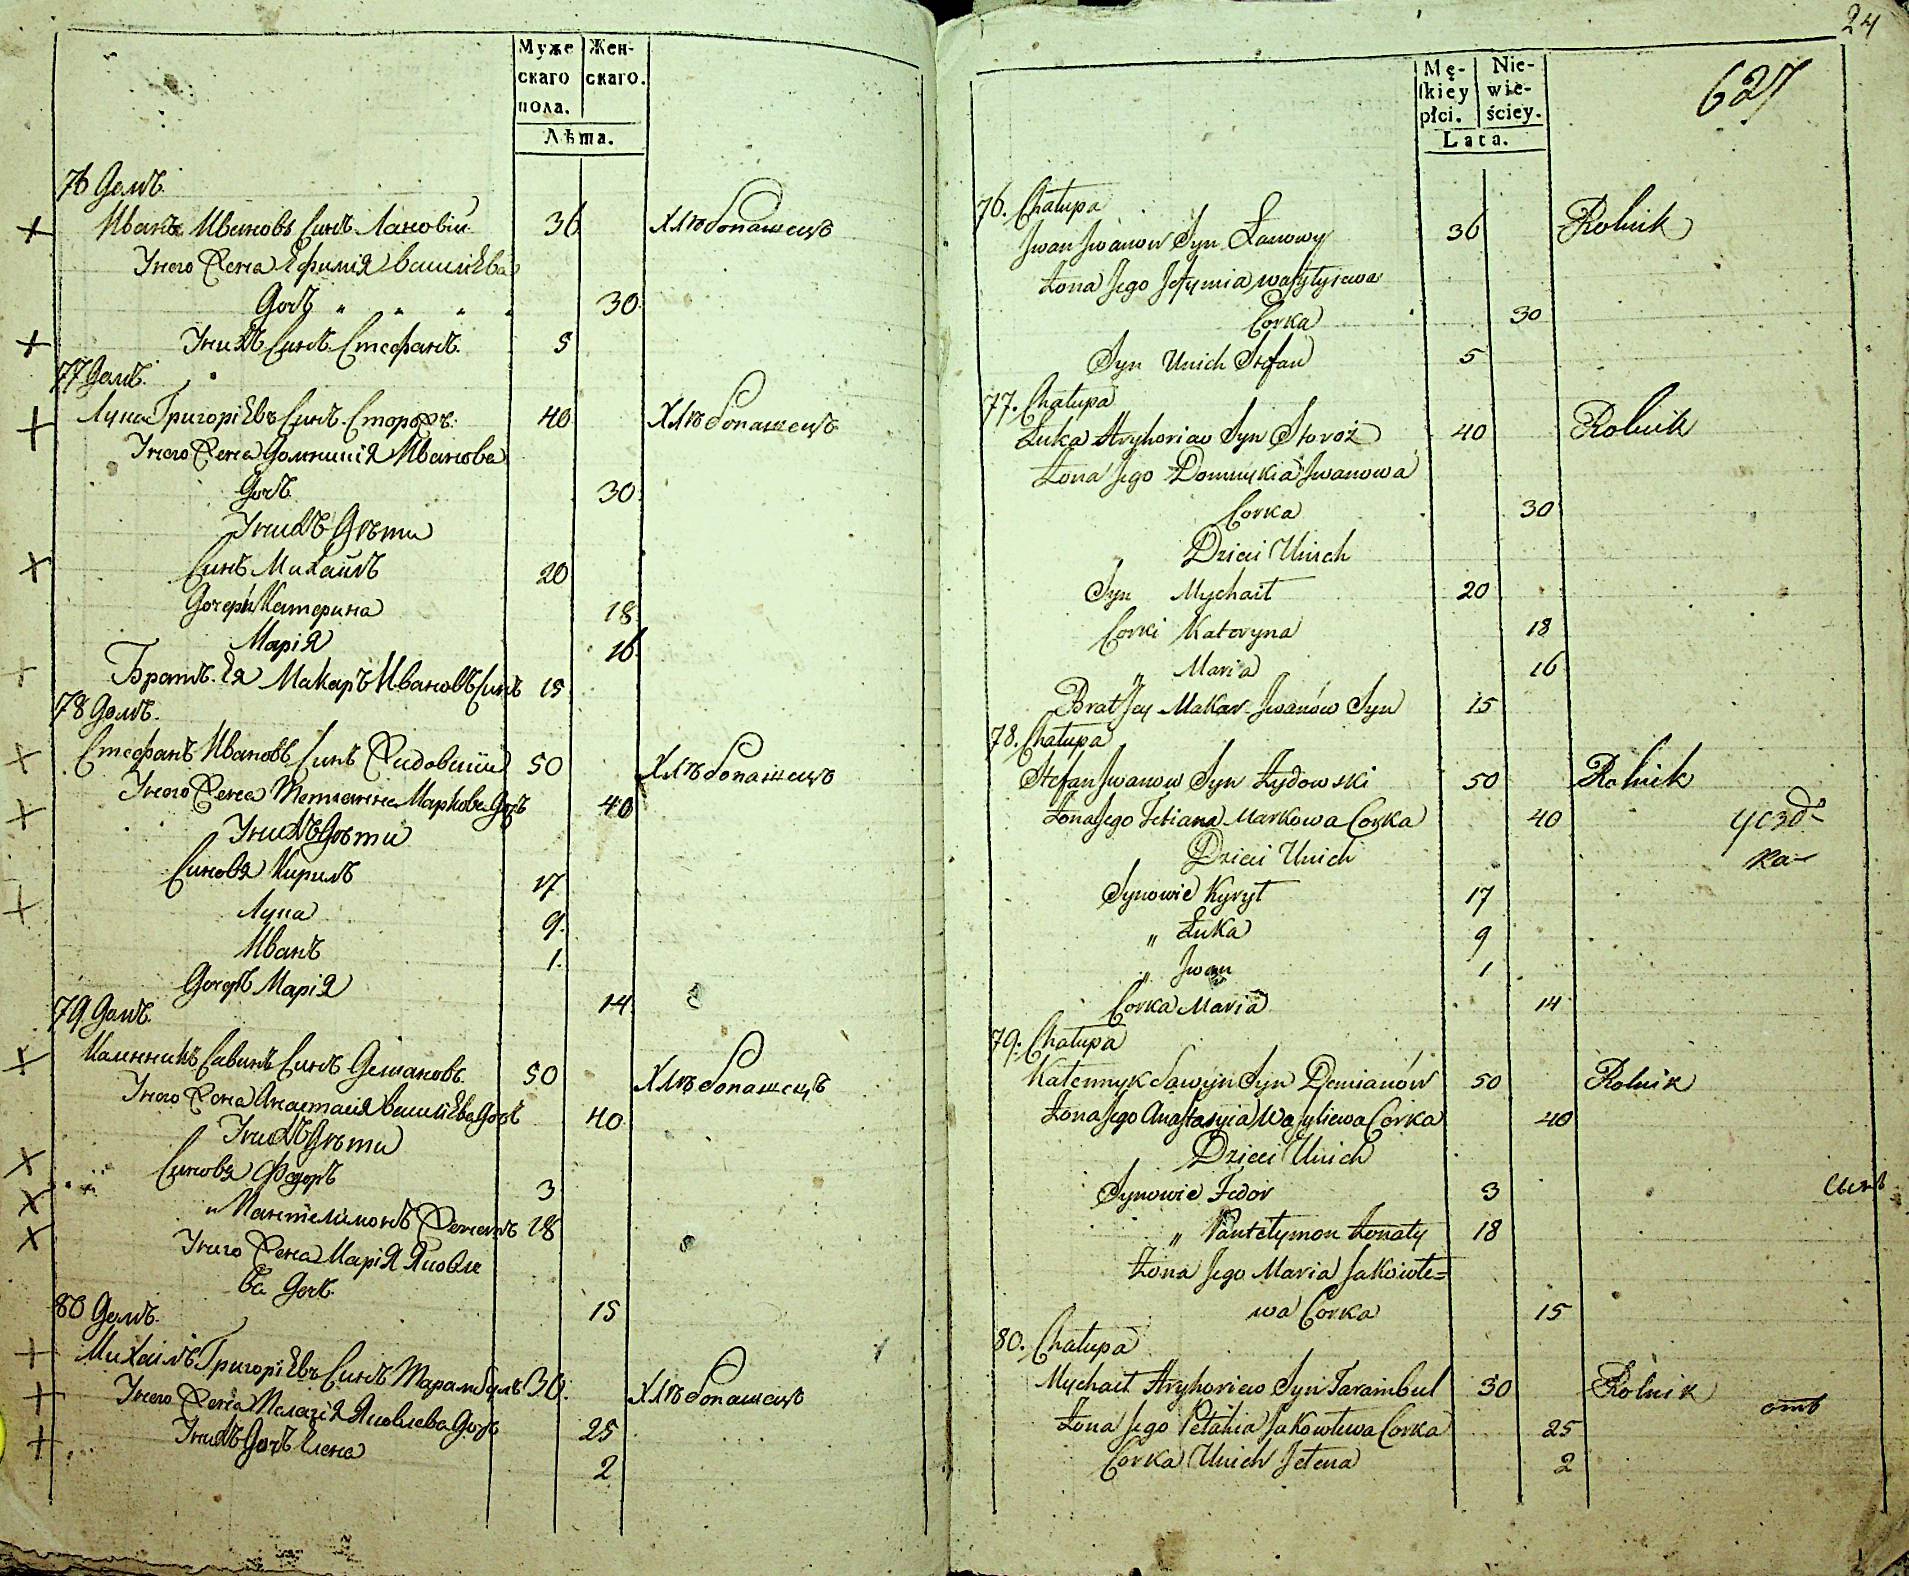 Муже
скаго
пола.
Жен-
скаго.
Лѣта.
76 Домъ.
Иванъ Ивановъ Синъ Лановій 36 Хлѣбопашецъ
Унего Жена Ефимія Василіева
Дочь " " " " 30
Унихъ Синъ Стефанъ. 5
77 Домъ.
Лука Григоріевъ Синъ Сторожъ. 40 Хлѣбопашецъ
Унего Жена Домникія Иванова
Дочь 30
Унихъ Дѣти
Синъ Михайлъ 20
Дочери Катерина 18
Марія 16
Братъ Ея Макаръ Ивановъ Синъ 15
78 Домъ.
Стефанъ Ивановъ Синъ Жидовскій 50 Хлѣбопашецъ
Унего Жена Тетианна Маркова Дочь 40
Унихъ Дѣти
Синовя Кирилъ 17
Лука 9.
Иванъ 1.
Дочерь Марія 14
79 Домъ.
Каленникъ Савинъ Синъ Демяновъ. 50 Хлѣбопашецъ
Унего Жена Анастасія Василіева Дочь 40
Унихъ Дѣти
Синовя Федоръ 3
" Пантелимонъ Женатъ 18
Унего Жена Марія Яковле
ва Дочь. 15
80 Домъ.
Михайлъ Григоріевъ Синъ Тарамбулъ 30. Хлѣбопашецъ
Унего Жена Пелагія Яковлева Дочь 25
Унихъ Дочь Елена 2
24
627
Mę-
ſkiey
płci.
Nie-
wie-
ściey.
Lata.
76. Chałupa
Jwan Jwanow Syn Łanowy 36 Rolnik
Żona Jego Jefymia Wasylyiewa
Corka 30
Syn Unich Stefan 5
77. Chałupa
Łuka Hryhoriew Syn Storoż 40 Rolnik
Żona Jego Domnykia Jwanowa
Corka 30
Dzieci Unich
Syn Mychaił 20
Corki Kateryna 18
" Maria 16
Brat Jey Makar Jwanów Syn 15
78. Chałupa
Stefan Jwanow Syn Żydowski 50 Rolnik
Żona Jego Tetiana Markowa Corka 40
Dzieci Unich
Synowie Kyrył 17
" Łuka 9
" Jwan 1
Corka Maria 14
79. Chałupa
Kałennyk Sawyn Syn Demianów 50 Rolnik
Żona Jego Anastasyia Wasyliewa Corka 40
Dzieci Unich
Synowie Fedor 3
" Pantełymon Żonaty 18
Żona Jego Maria Jakowłe=
wa Corka 15
80. Chałupa
Mychaił Hryhoriew Syn Tarambul 30 Rolnik
Żona Jego Pełahia Jakowłewa Corka 25
Corka Unich Jełena 2